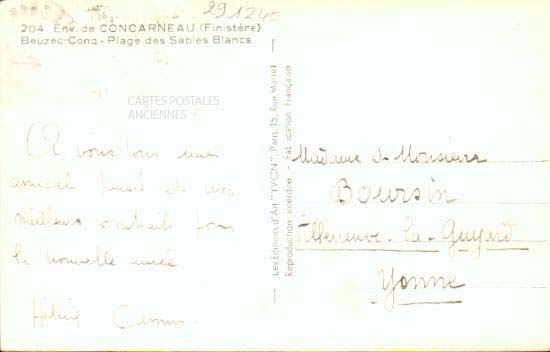 291240
204 Env. de CONCARNEAU (Finistère)
Beuzec-Conq - Plage des Sables Blancs
CARTES POSTALES
ANCIENNES
A vous tous une
amical pensée et mes
meilleurs souhaits pour
la nouvelle année
Camus
Les Editions d'Art "YVON", Paris, 15, Rue Martel
Reproduction interdite - Fabrication Française
Madame & Monsieur
Boursin
Villeneuve-la-Guyard
Yonne